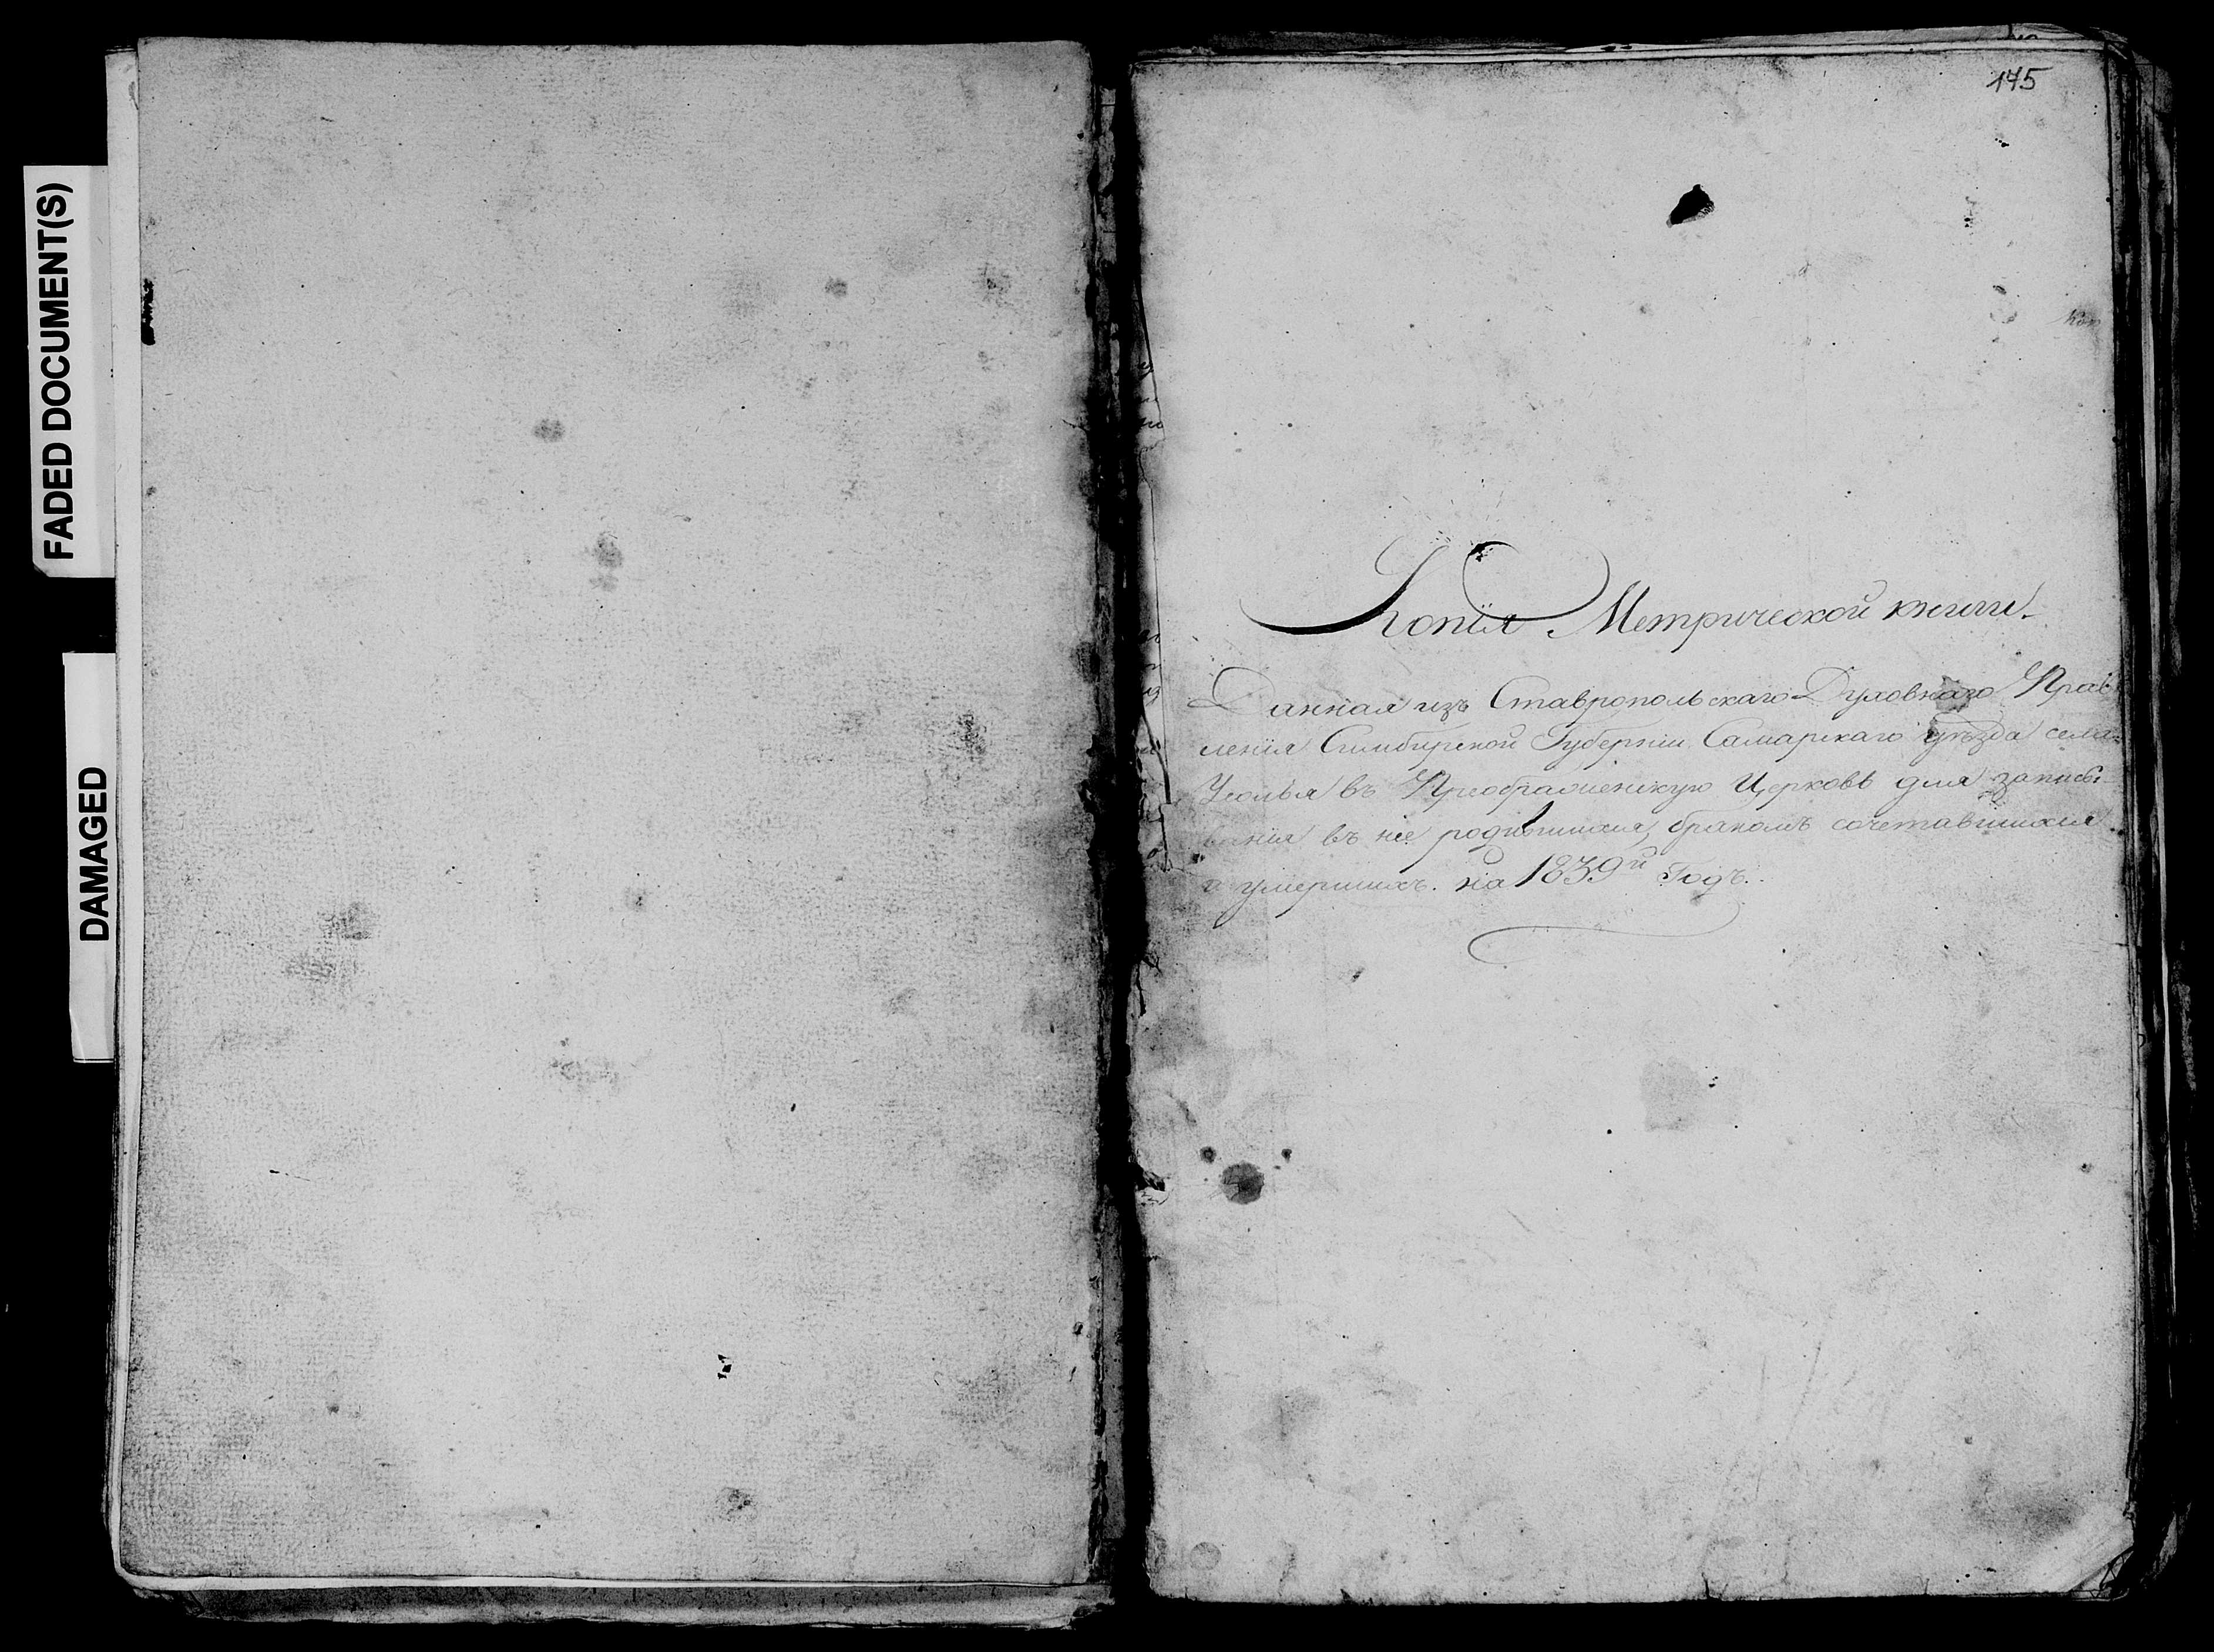 FADED DOCUMENT(S)
DAMAGED
175
Копія Метрической книги
Данная изъ Ставропольскаго Духовнаго Прав
ленія Симбирской Губерніи Самарскаго уѣзда села
Усолья въ Преображенскую Церковь для записы
ванія въ нее родившихся, бракомъ сочетавшихся
и умершихъ. на 1839й Годъ.